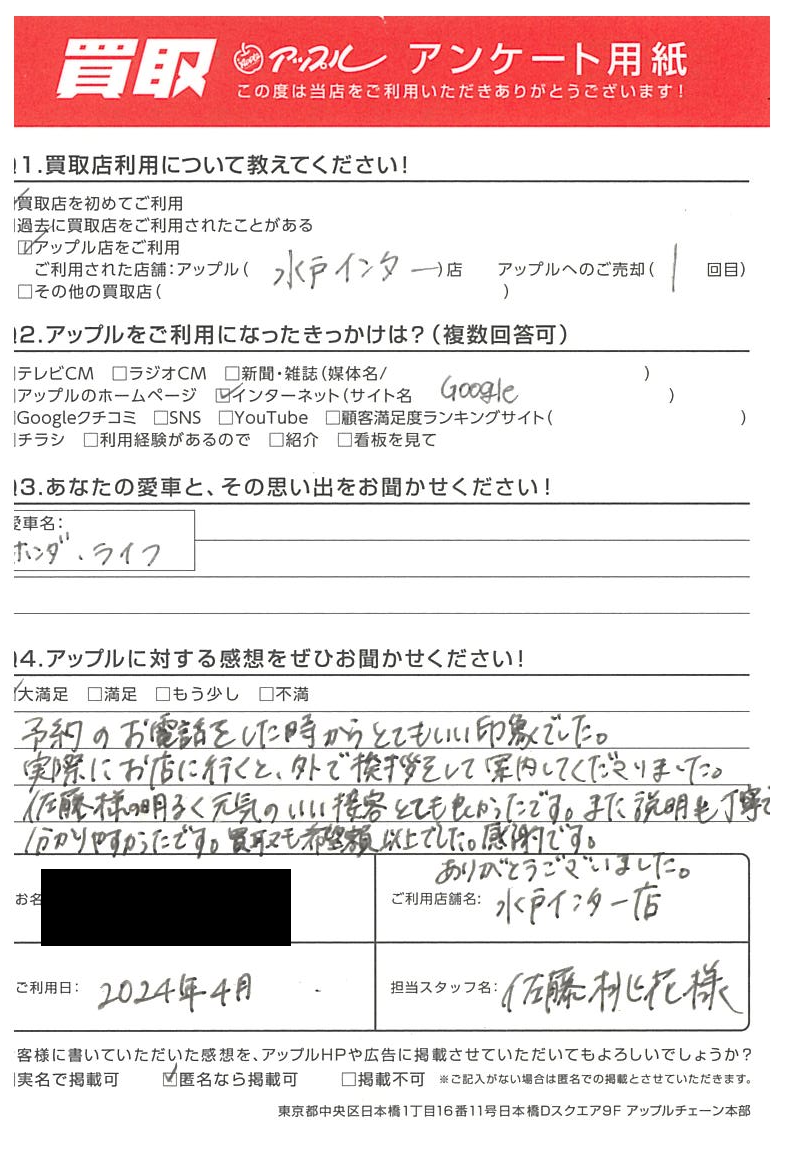 買取 アップル アンケート用紙
この度は当店をご利用いただきありがとうございます!
Q1.買取店利用について教えてください!
☑買取店を初めてご利用
□過去に買取店をご利用されたことがある
☑アップル店をご利用
ご利用された店舗:アップル( 水戸インター )店 アップルへのご売却( 1 回目)
□その他の買取店( )
Q2.アップルをご利用になったきっかけは?(複数回答可)
□テレビCM □ラジオCM □新聞・雑誌(媒体名/ )
□アップルのホームページ ☑インターネット(サイト名 Google )
□Googleクチコミ □SNS □YouTube □顧客満足度ランキングサイト( )
□チラシ □利用経験があるので □紹介 □看板を見て
Q3.あなたの愛車と、その思い出をお聞かせください!
愛車名:
ホンダ・ライフ
Q4.アップルに対する感想をぜひお聞かせください!
☑大満足 □満足 □もう少し □不満
予約のお電話をした時からとてもいい印象でした。
実際にお店に行くと、外で挨拶をして案内してくださりました。
佐藤様の明るく元気のいい接客とても良かったです。また説明も丁寧で
分かりやすかったです。買取又も希望額以上でした。感謝です。
ありがとうございました。
お名
ご利用店舗名: 水戸インター店
ご利用日: 2024年4月
担当スタッフ名: 佐藤桃花様
客様に書いていただいた感想を、アップルHPや広告に掲載させていただいてもよろしいでしょうか?
□実名で掲載可 ☑匿名なら掲載可 □掲載不可 ※ご記入がない場合は匿名での掲載とさせていただきます。
東京都中央区日本橋1丁目16番11号日本橋Dスクエア9F アップルチェーン本部